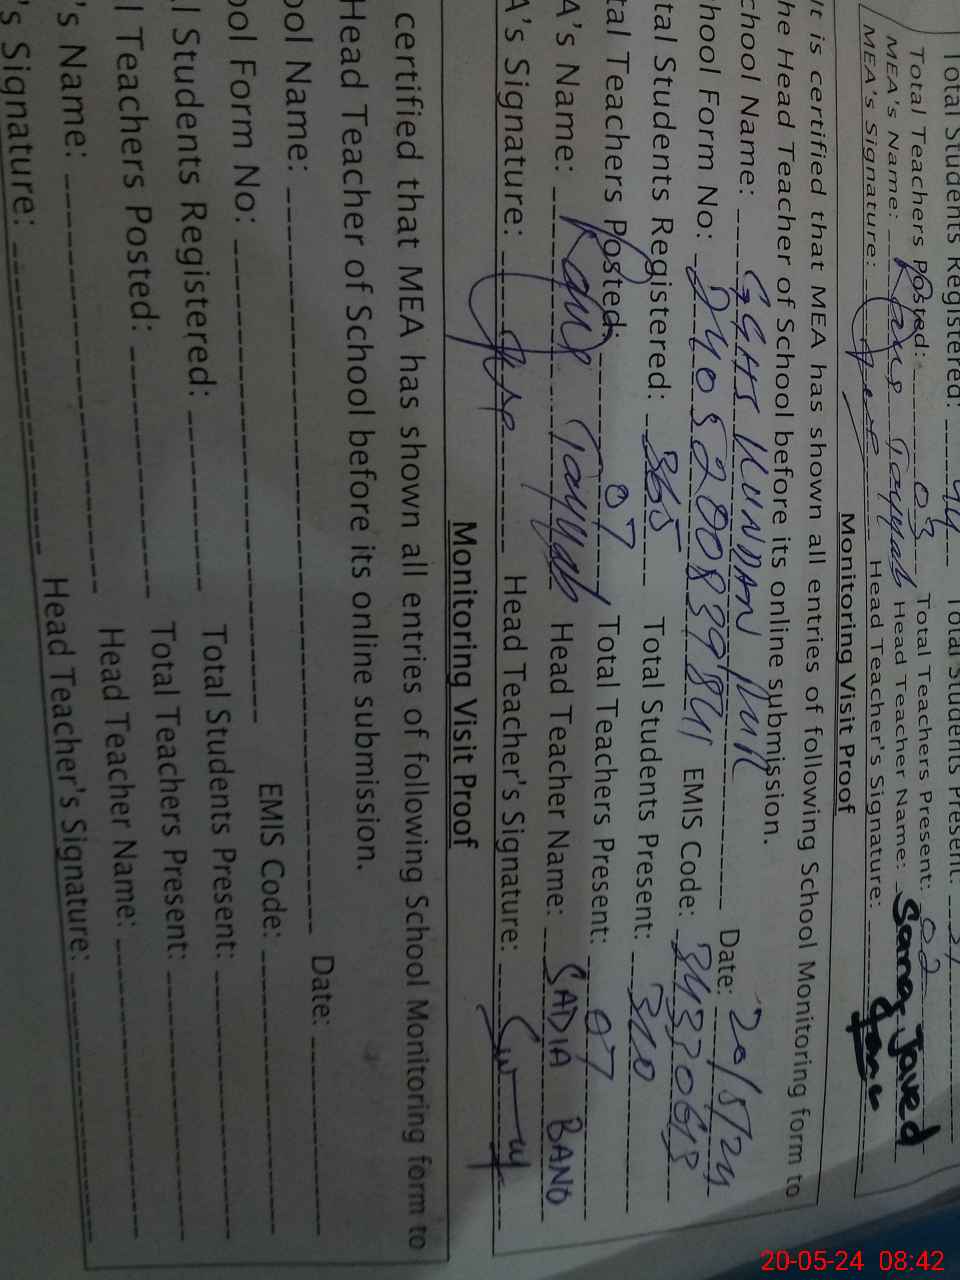 Total Students Registered: Total Students Present:
Total Teachers Posted: 03 Total Teachers Present: 02
MEA's Name: Tayyab Head Teacher Name: Javed
MEA's Signature: Head Teacher's Signature:
Monitoring Visit Proof
It is certified that MEA has shown all entries of following School Monitoring form to
he Head Teacher of School before its online submission.
chool Name: GGHS KUNDAN Date: 20/5/24
hool Form No: EMIS Code: 34330618
tal Students Registered: 365 Total Students Present: 310
tal Teachers Posted: 07 Total Teachers Present: 07
A's Name: Tayyab Head Teacher Name: SADIA BANO
A's Signature: Head Teacher's Signature:
Monitoring Visit Proof
certified that MEA has shown all entries of following School Monitoring form to
Head Teacher of School before its online submission.
ool Name: Date:
ool Form No: EMIS Code:
l Students Registered: Total Students Present:
l Teachers Posted: Total Teachers Present:
's Name: Head Teacher Name:
's Signature: Head Teacher's Signature:
20-05-24 08:42